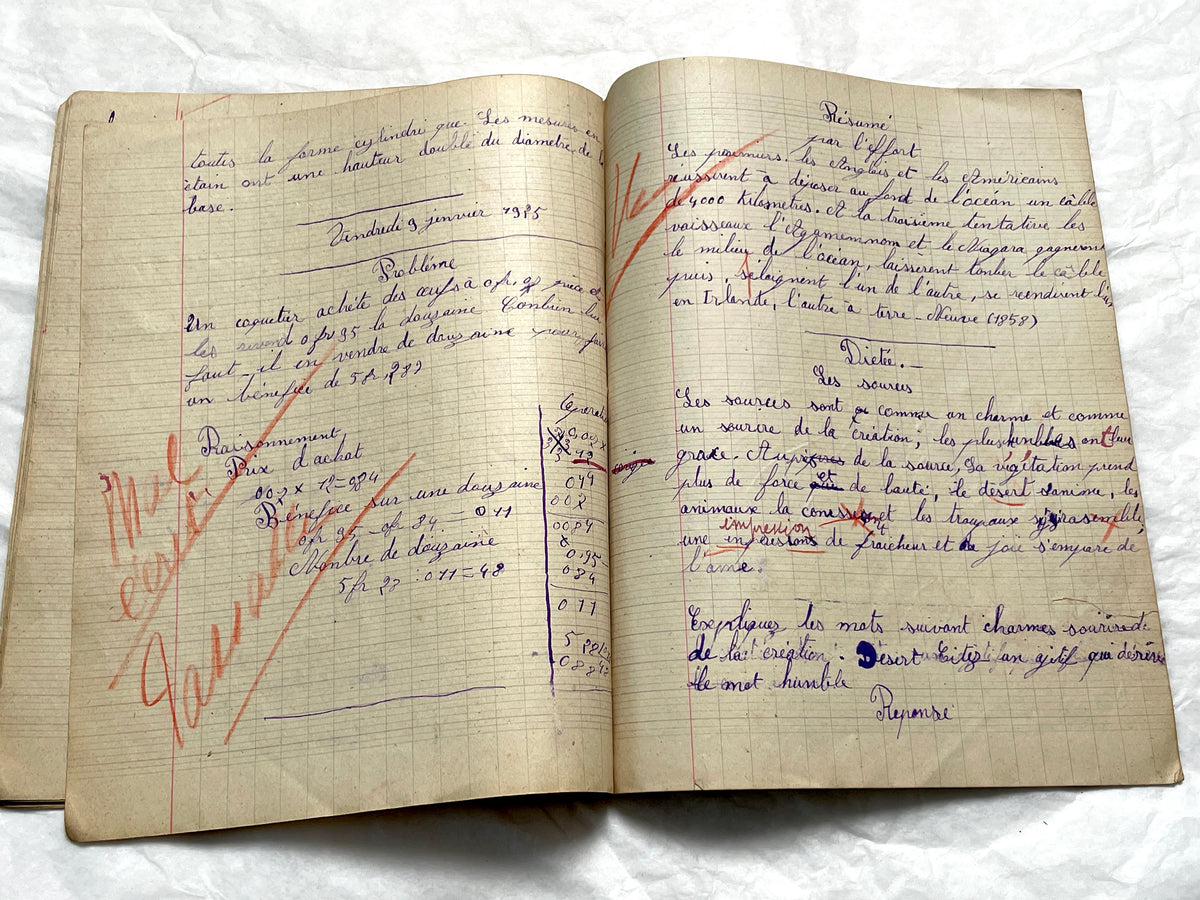 toutes la forme cylindri que. Les mesures en
étain ont une hauteur double du diametre de la
base.
Vendredi 9 janvier 1925
Problème
Un coquetier achète des œufs à 0 fr, 07 pièce et
les revend 0 fr 95 la douzaine Combien lui
faut-il en vendre de douzaine pour faire
un bénéfice de 5 fr, 282
Raisonnement
Prix d'achat
007 x 12 = 084
Bénéfice sur une douzaine
0 fr 95 - 0 fr 84 = 0 11
Nombre de douzaine
5 fr 28 : 0 11 = 48
Mal
écrit
Opérati
12
014
007
0084
0,95
084
011
Résumé
par l'effort
Les premiers les Anglais et les Américains
réussirent à déposer au fond de l'océan un câble
de 4000 Kilomètres. A la troisième tentative les
vaisseaux l'Agamemnom et le Niagara gagnèrent
le milieu de l'océan, laissèrent tomber le câble
puis, s'eloignent l'un de l'autre, se rendirent l'un
en Irlande, l'autre à terre-Neuve (1858)
Dictée.-
Les sources
Les sources sont comme un charme et comme
un sourire de la création; les plus humbles ont leur
grace. Au de la source, la végitation prend
plus de force et de bauté, le désert s'anime, les
animaux la et les troupaux
impression
une de fraîcheur et de joie s'empare de
l'ame.
Expliquez les mots suivant charmes sourire
de la création. Désert Citez qui dérive
le mot humble
Reponse